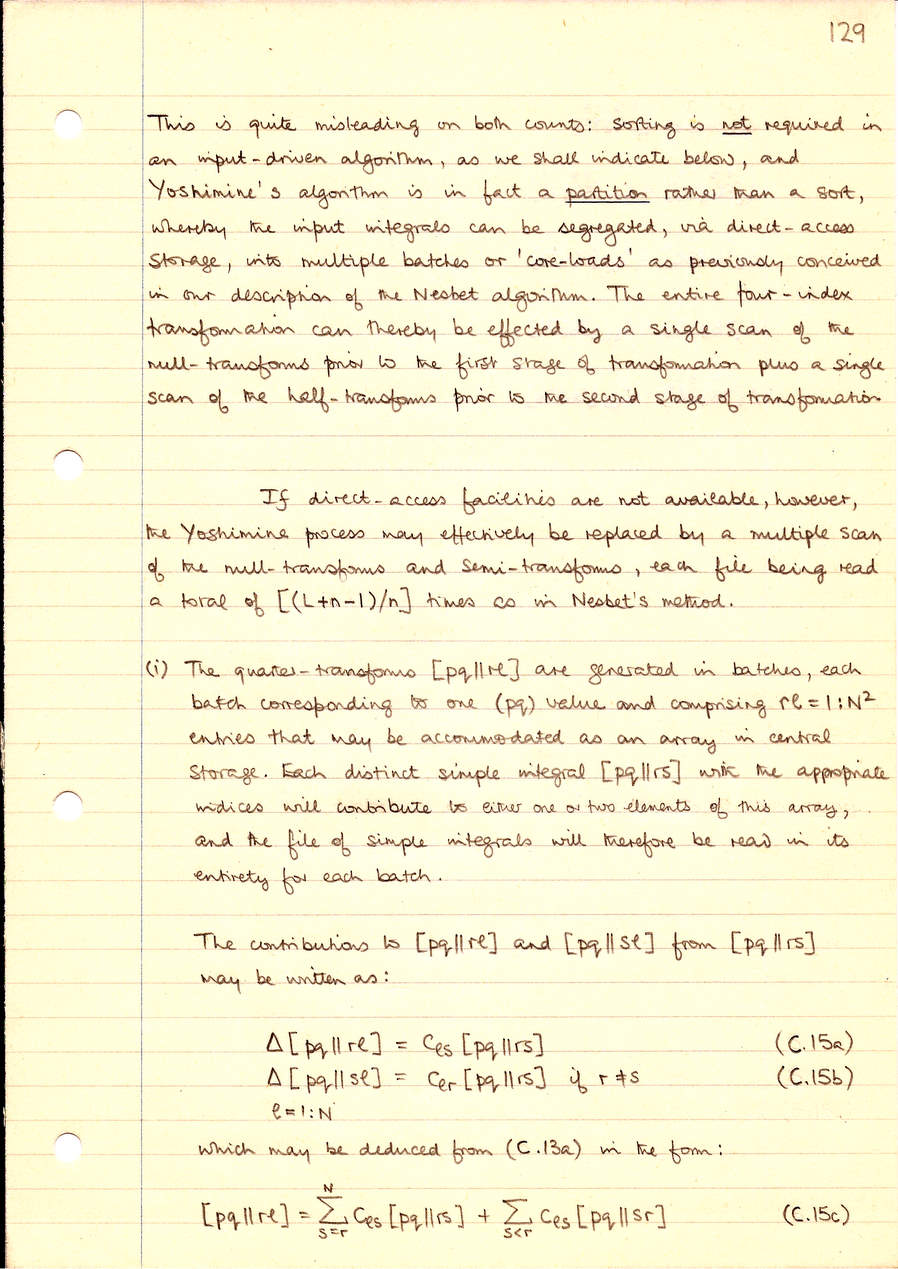 129
This is quite misleading on both counts: Sorting is not required in
an input-driven algorithm, as we shall indicate below, and
Yoshimine's algorithm is in fact a partition rather than a sort,
whereby the input integrals can be segregated, via direct-access
Storage, into multiple batches or 'core-loads' as previously conceived
in our description of the Nesbet algorithm. The entire four-index
transformation can thereby be effected by a single scan of the
null-transforms prior to the first stage of transformation plus a single
scan of the half-transforms prior to the second stage of transformation
If direct-access facilities are not available, however,
the Yoshimine process may effectively be replaced by a multiple scan
of the null-transforms and semi-transforms, each file being read
a total of [(L+n-1)/n] times as in Nesbet's method.
(i) The quarter-transforms [pq||rl] are generated in batches, each
batch corresponding to one (pq) value and comprising rl=1:N²
entries that may be accommodated as an array in central
storage. Each distinct simple integral [pq||rs] with the appropriate
indices will contribute to either one or two elements of this array,
and the file of simple integrals will therefore be read in its
entirety for each batch.
The contributions to [pq||rl] and [pq||sl] from [pq||rs]
may be written as:
Δ[pq||rl] = Cls [pq||rs] (C.15a)
Δ[pq||sl] = Clr [pq||rs] if r≠s (C.15b)
l=1:N
which may be deduced from (C.13a) in the form:
[pq||rl] = N∑s=r Cls [pq||rs] + ∑s<r Cls [pq||sr] (C.15c)